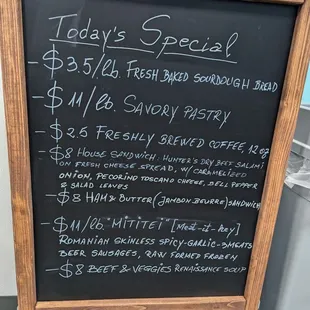 Today's Special
- $3.5/lb. FRESH BAKED SOURDOUGH BREAD
- $11/lb. SAVORY PASTRY
- $2.5 FRESHLY BREWED COFFEE, 12 oz
- $8 HOUSE SANDWICH. HUNTER'S DRY BEEF SALAMI
ON FRESH CHEESE SPREAD, W/ CARAMELIZED
ONION, PECORINO TOSCANO CHEESE, BELL PEPPER
& SALAD LEAVES
- $8 HAM & BUTTER (JAMBON-BEURRE) SANDWICH
- $11/lb. MITITEI [Meet-it-hey]
ROMANIAN SKINLESS SPICY-GARLIC-3MEATS
BEER SAUSAGES, RAW FORMED FROZEN
- $8 BEEF & VEGGIES RENAISSANCE SOUP